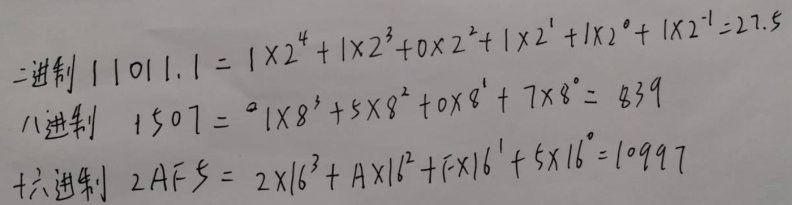 二进制 11011.1 = 1×2⁴ + 1×2³ + 0×2² + 1×2¹ + 1×2⁰ + 1×2⁻¹ = 27.5
八进制 1507 = 1×8³ + 5×8² + 0×8¹ + 7×8⁰ = 839
十六进制 2AF5 = 2×16³ + A×16² + F×16¹ + 5×16⁰ = 10997